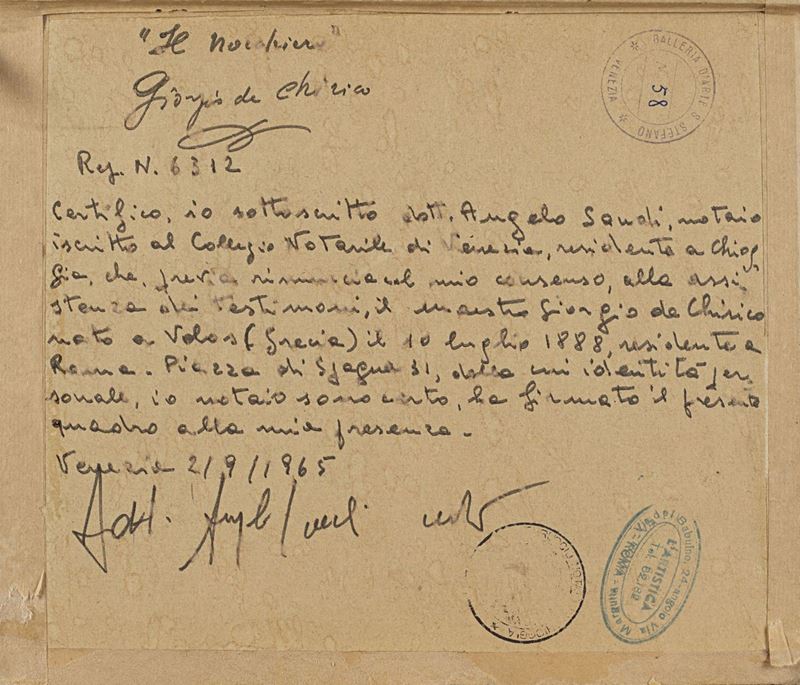 "Il nocchiero"
Giorgio de Chirico
Rep. N. 6312
GALLERIA D'ARTE S. STEFANO
VENEZIA
58
Certifico, io sottoscritto dott. Angelo Sandi, notaio
iscritto al Collegio Notarile di Venezia, residente a Chiog
gia, che, previa rinuncia col mio consenso, alla assi
stenza dei testimoni, il maestro Giorgio de Chirico
nato a Volos (Grecia) il 10 luglio 1888, residente a
Roma - Piazza di Spagna 31, della cui identità per
sonale, io notaio sono certo, ha firmato il presente
quadro alla mia presenza.
Venezia 2/9/1965
Dott. Angelo Sandi
del Babuino, 24 - angolo Via
L'ARTISTICA
Tel.
ROMA